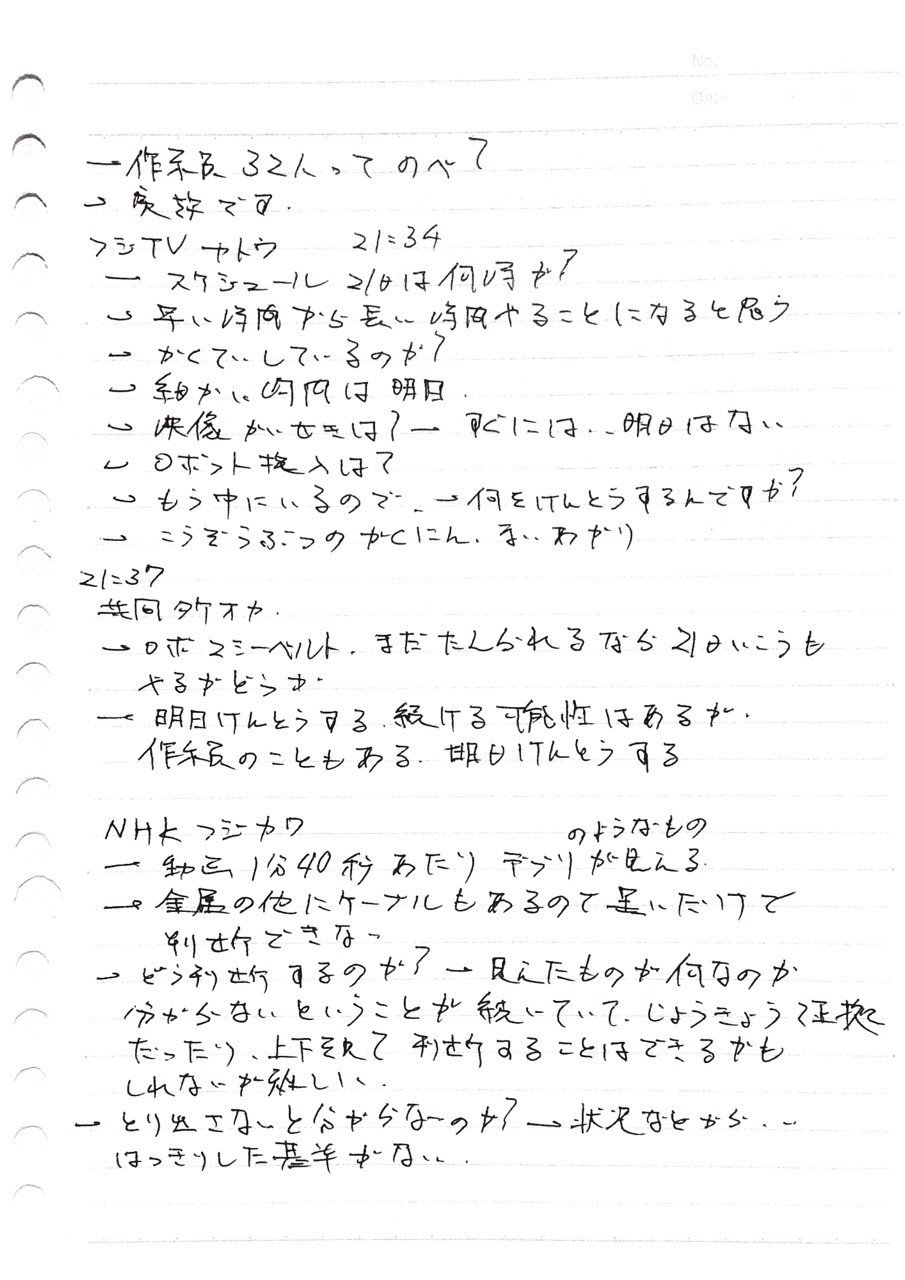 No.
Date
→作業員32人って のべ?
→ 実数です.
フジTV カトウ 21:34
ー スケジュール 21日は何時か?
→ 早い時間から長い時間やることになると思う
→ かくていしているのか?
→ 細かい時間は明日.
→ 映像かいせきは?→ すぐには.. 明日はない
→ ロボット投入は?
→ もう中にいるので. →何をけんとうするんですか?
→ こうぞうぶつのかくにん. まいあがり
21:37
共同 タケオカ.
→ロボ シーベルト. まだ たえられるなら 21日いこうも
やるかどうか
ー 明日けんとうする. 続ける可能性はあるが.
作業員のこともある. 明日けんとうする
NHK フジカワ
のようなもの
ー 動画 1分40秒 あたり デブリが見える.
→ 金属の他にケーブルもあるので 見ただけで
判断できない
→ どう判断するのか? → 見えたものが何なのか
分からないということが続いていて. じょうきょう証拠
だったり、上下を見て 判断することはできるかも
しれないが難しい.
→ とり出さないと分からないのか? → 状況などから...
はっきりした基準がない.